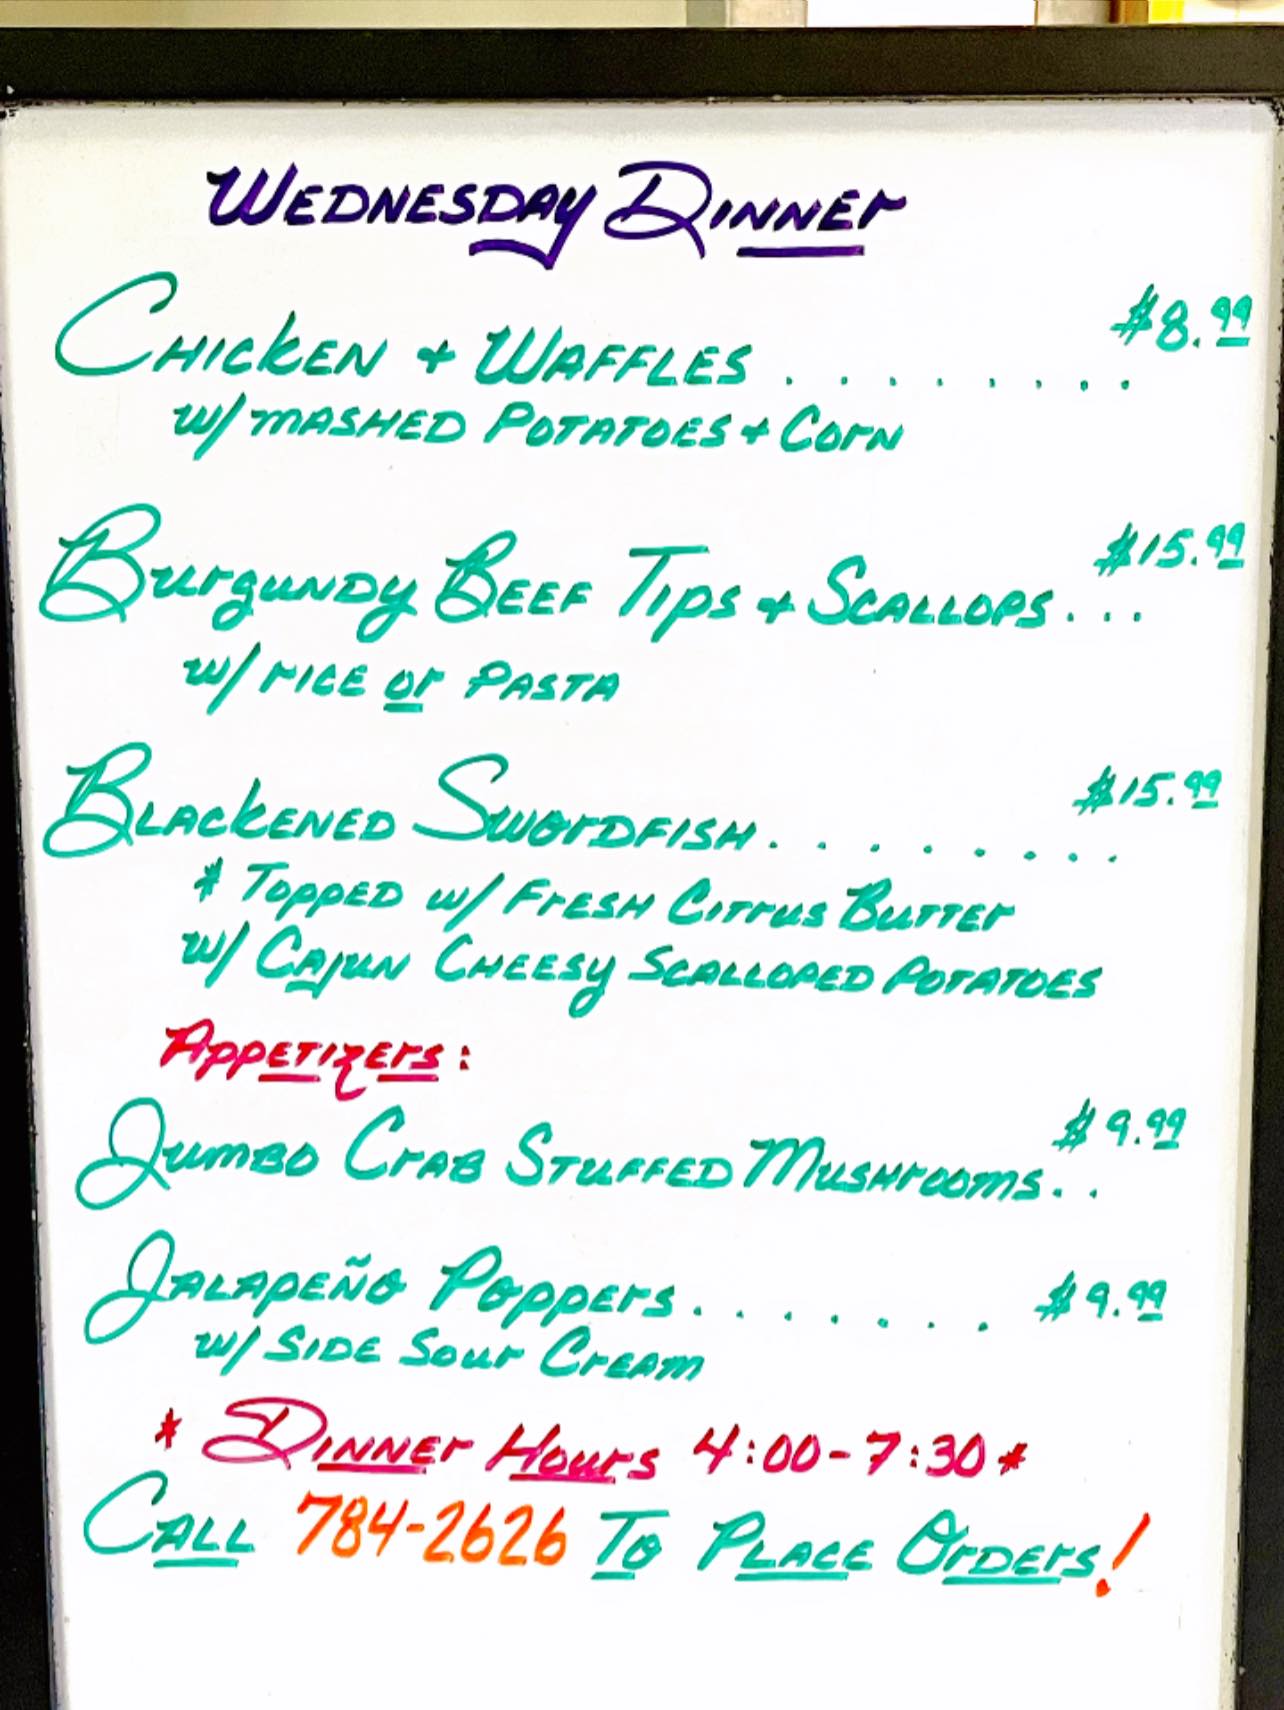 Wednesday Dinner
Chicken + Waffles ........ $8.99
w/ mashed Potatoes + Corn
Burgundy Beef Tips + Scallops ... $15.99
w/ rice or Pasta
Blackened Swordfish ........ $15.99
* Topped w/ Fresh Citrus Butter
w/ Cajun Cheesy Scalloped Potatoes
Appetizers:
Jumbo Crab Stuffed Mushrooms .. $9.99
Jalapeño Poppers ....... $9.99
w/ Side Sour Cream
* Dinner Hours 4:00-7:30 *
Call 784-2626 To Place Orders!